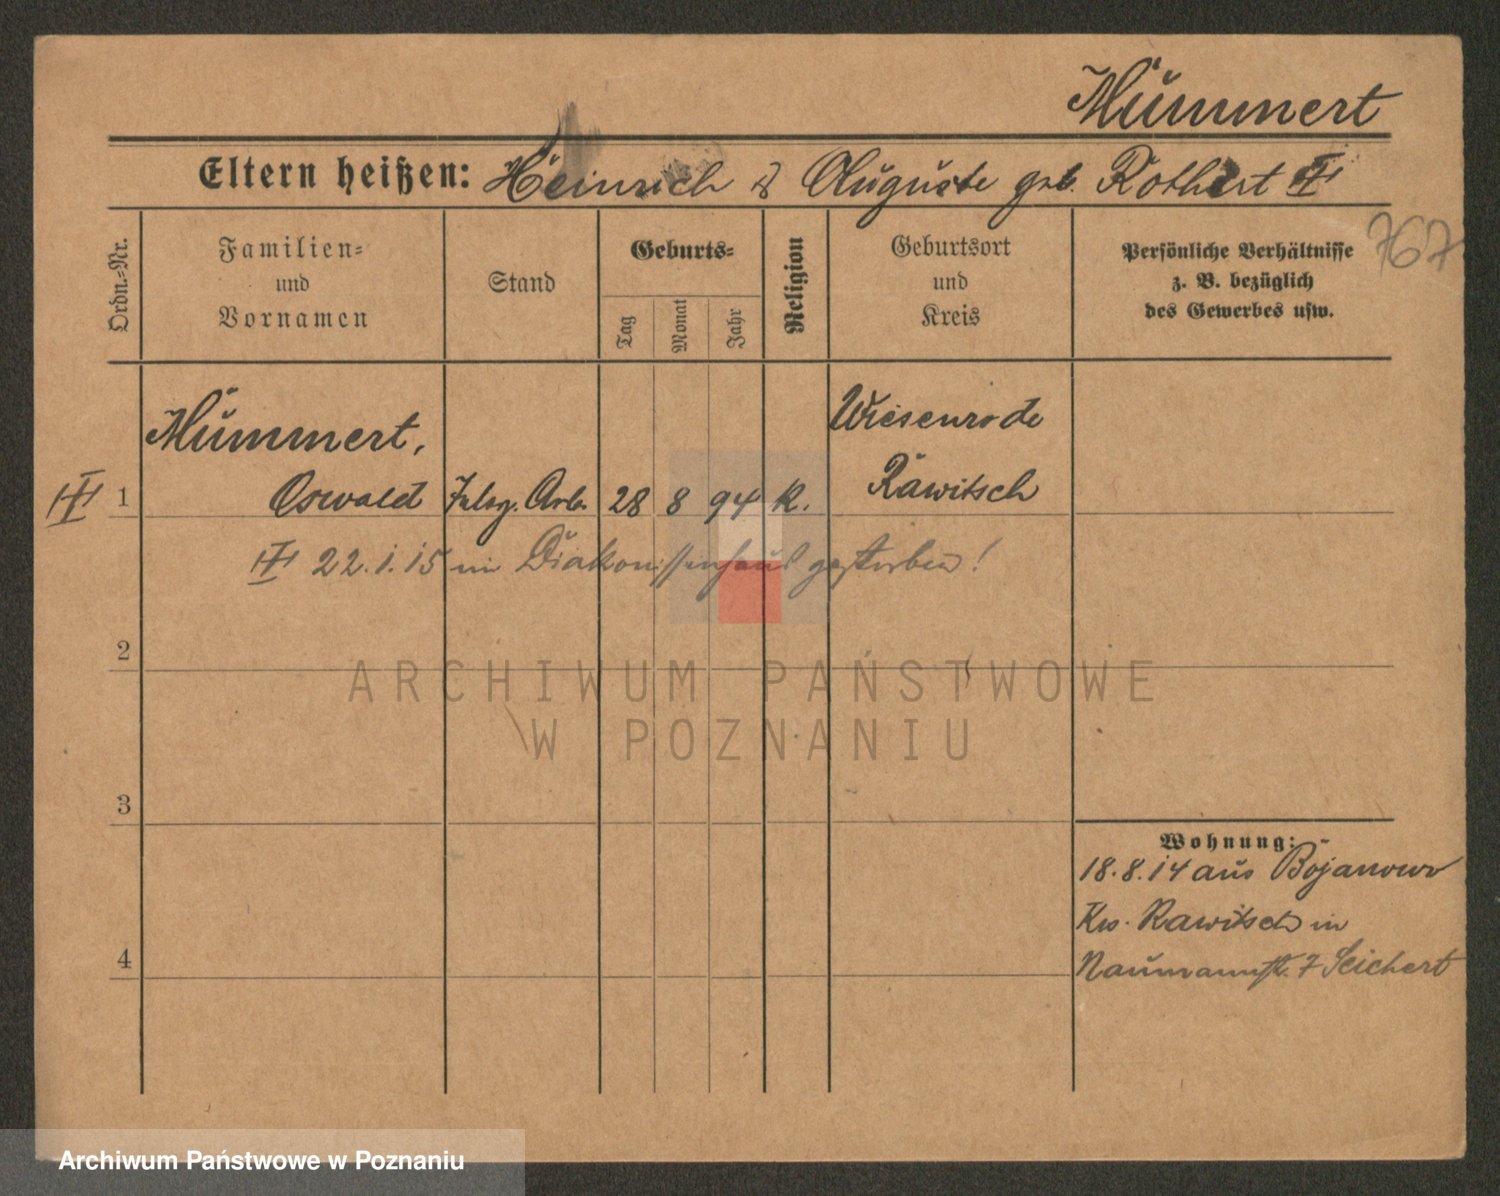 Mummert
Eltern heißen: Heinrich & Auguste geb. Rothert
767
Ordn.-Nr.
Familien-
und
Vornamen
Stand
Geburts-
Tag
Monat
Jahr
Religion
Geburtsort
und
Kreis
Persönliche Verhältnisse
z. B. bezüglich
des Gewerbes usw.
Mummert,
Wiesenrode
1 Oswald Arb. 28 8 94 K. Rawitsch
22.1.15 im Diakonissenhaus gestorben!
2
ARCHIWUM PAŃSTWOWE
W POZNANIU
3
Wohnung:
18.8.14 aus Bojanowo
Krs. Rawitsch in
4
Naumannstr. 7 Seichert
Archiwum Państwowe w Poznaniu